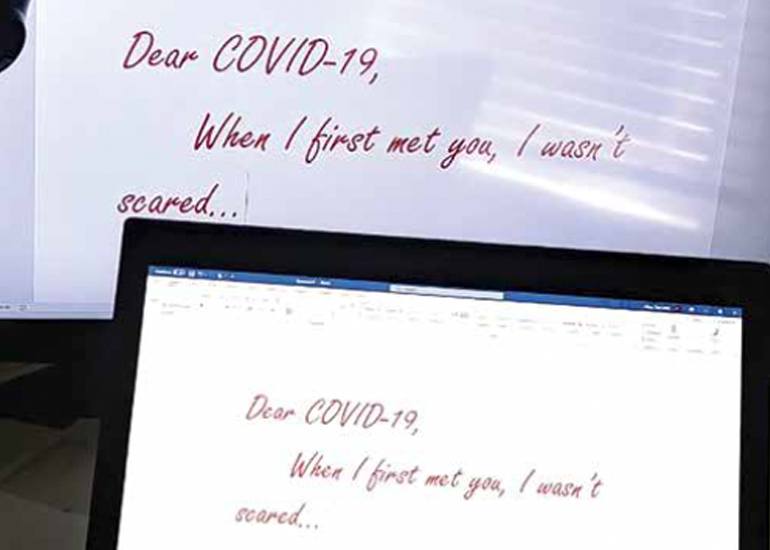 Dear COVID-19,
When I first met you, I wasn't
scared...
Dear COVID-19,
When I first met you, I wasn't
scared...